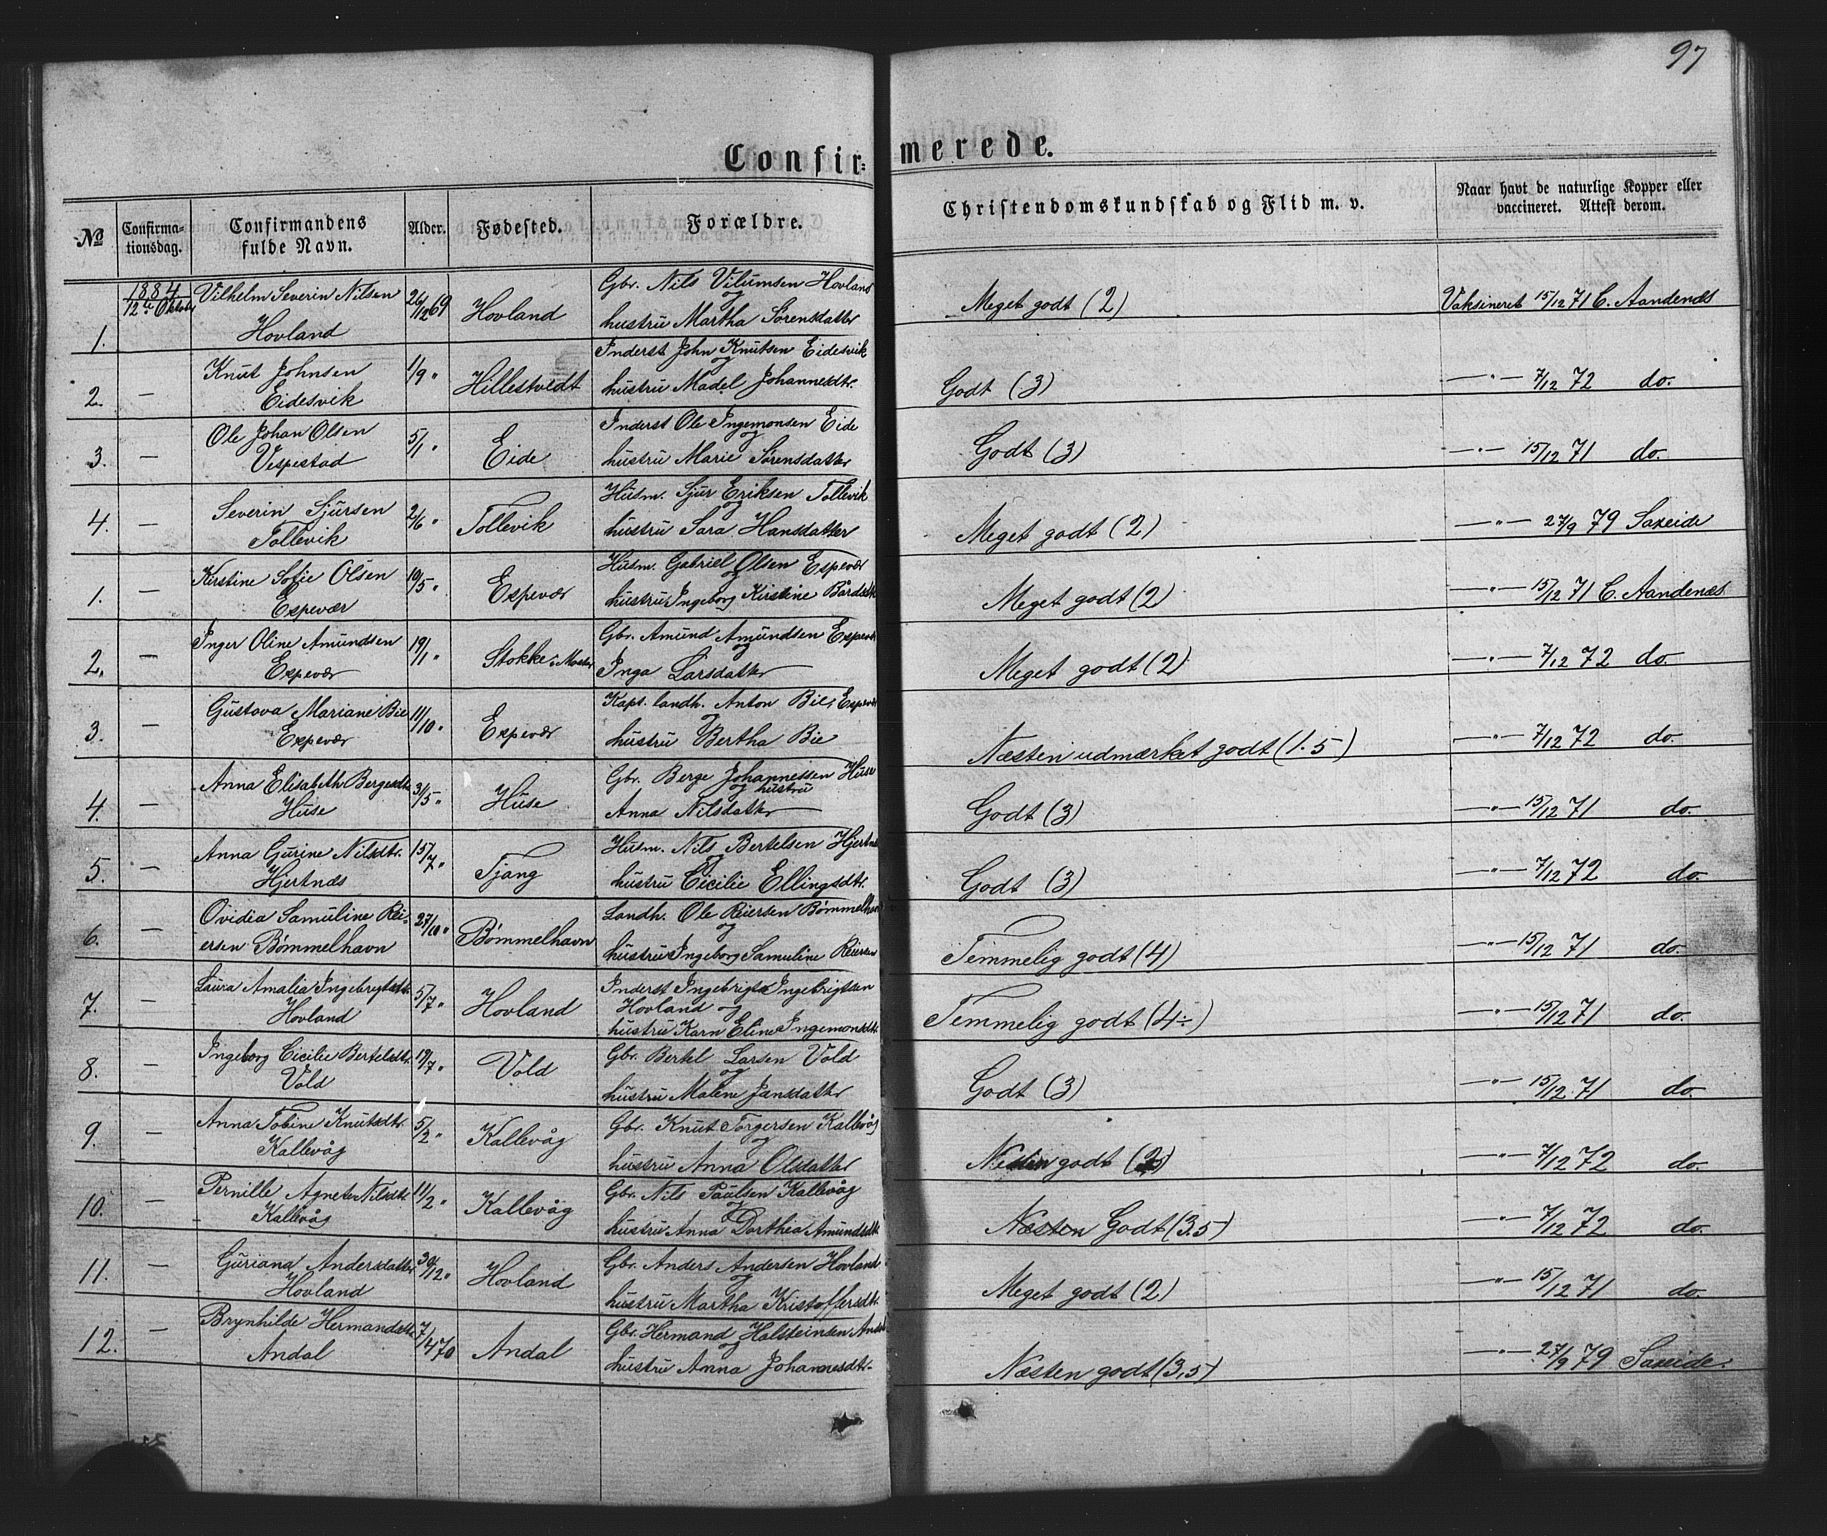 97
Confir-
merede.
No
Confirma-
tionsdag.
Confirmandens
fulde Navn.
Alder.
Fødested.
Forældre.
Christendomskundskab og Flid m. v.
Naar havt de naturlige Kopper eller
vaccineret. Attest derom.
1884
12te Oktober
1. Vilhelm Severin Nilsen 26/12 69 Hovland Gbr. Nils Vilumsen Hovland
Hovland og hustru Martha Sørensdatter
Meget godt (2) Vaksineret 15/12 71 C. Aandenæs
2. — Knut Johnsen 1/9 " Hillestvedt Inderst John Knutsen Eidesvik
Eidesvik og hustru Madel Johannesdtr.
Godt (3) —"— 7/12 72 do.
3. — Ole Johan Olsen 5/1 " Eide Inderst Ole Ingemonsen Eide
Vespestad og hustru Marie Sørensdatter
Godt (3) —"— 15/12 71 do.
4. — Severin Sjursen 2/6 " Tollevik Husm. Sjur Eriksen Tollevik
Tollevik hustru Sara Hansdatter
Meget godt (2) —"— 27/9 79 Saxeide
1. — Kirstine Sofie Olsen 19/5 " Espevær Husm. Gabriel Olsen Espevær
Espevær og hustru Ingeborg Kirstine Bårdsdtr
Meget godt (2) —"— 15/12 71 C. Aandenæs
2. — Inger Oline Amundsen 19/1 " Stokke i Moster Gbr. Amund Amundsen Espevær
Espevær og Inga Larsdatter
Meget godt (2) —"— 7/12 72 do.
3. — Gustava Mariane Bie 11/10 " Espevær Kaps. landh. Anton Bie, Espevær
Espevær og hustru Bertha Bie
Næsten udmærket godt (1.5) —"— 7/12 72 do.
4. — Anna Elisabeth Bergesdtr 3/5 " Huse Gbr. Berge Johannessen Huse
Huse og hustru Anna Nilsdatter
Godt (3) —"— 15/12 71 do.
5. — Anna Gurine Nilsdtr. 15/7 " Tjong Husm. Nils Bertelsen Hjertnæs
Hjertnæs og hustru Cicilie Ellingsdtr.
Godt (3) —"— 7/12 72 do.
6. — Ovidia Samuline Rei- 27/10 " Bømmelhavn Landh. Ole Reiersen Bømmelhavn
ersen Bømmelhavn og hustru Ingeborg Samuline Reiersen
Temmelig godt (4) —"— 15/12 71 do.
7. — Laura Amalia Ingebrigtsdtr. 5/7 " Hovland Inderst Ingebrigt Ingebrigtsen
Hovland Hovland og
hustru Karn Eline Ingemonsdtr.
Temmelig godt (4÷) —"— 15/12 71 do.
8. — Ingeborg Cicilie Bertelsdtr 19/7 " Vold Gbr. Bertel Larsen Vold
Vold og hustru Malene Jansdatter
Godt (3) —"— 15/12 71 do.
9. — Anna Tobine Knutsdtr. 5/2 " Kallevåg Gbr. Knut Torgersen Kallevåg
Kallevåg og hustru Anna Olsdatter
godt —"— 7/12 72 do.
10. — Pernille Agnete Nilsdtr 11/2 " Kallevåg Gbr. Nils Paulsen Kallevåg
Kallevåg og hustru Anna Dorthea Amundsdtr
Næsten Godt (3.5) —"— 7/12 72 do.
11. — Guriana Andersdatter 30/12 " Hovland Gbr. Anders Andersen Hovland
Hovland og hustru Martha Kristoffersdtr.
Meget godt (2) —"— 15/12 71 do.
12. — Brynhilde Hermandsdtr 7/4 70 Andal Gbr. Hermand Halsteinsen Andal
Andal og hustru Anna Johannesdtr.
Næsten godt (3,5) —"— 27/9 79 Saxeide